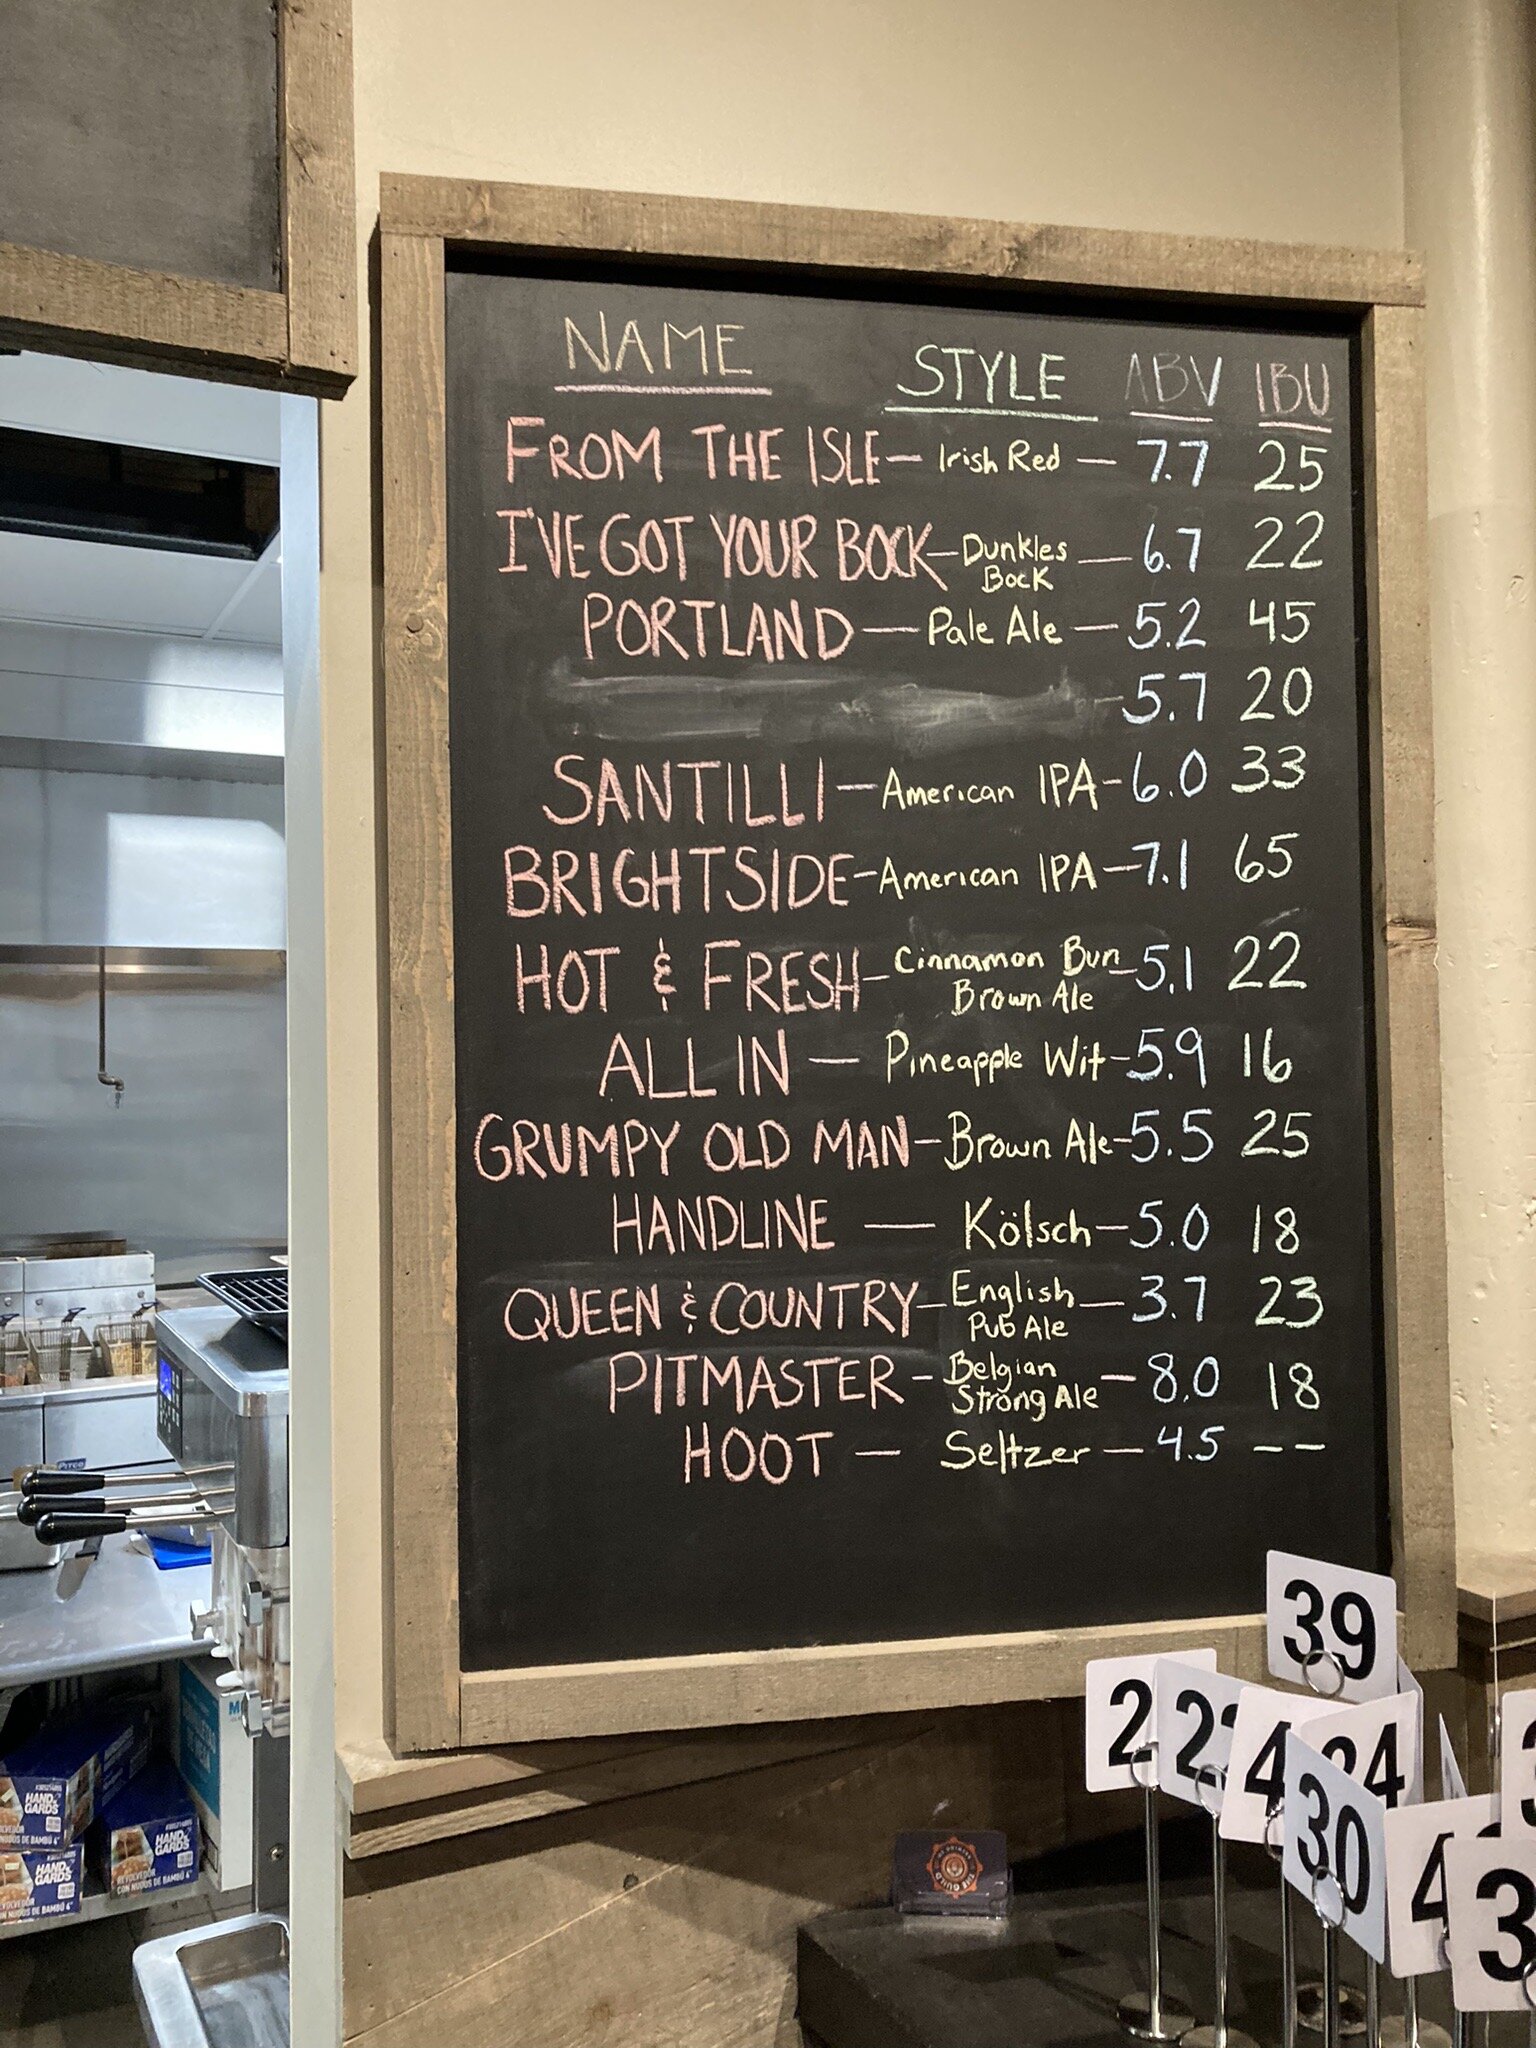 NAME STYLE ABV IBU
FROM THE ISLE — Irish Red — 7.7 25
I'VE GOT YOUR BOCK — Dunkles — 6.7 22
Bock
PORTLAND — Pale Ale — 5.2 45
- 5.7 20
SANTILLI — American IPA - 6.0 33
BRIGHTSIDE - American IPA — 7.1 65
HOT & FRESH - Cinnamon Bun - 5.1 22
Brown Ale
ALL IN — Pineapple Wit - 5.9 16
GRUMPY OLD MAN - Brown Ale - 5.5 25
HANDLINE — Kölsch - 5.0 18
QUEEN & COUNTRY - English — 3.7 23
Pub Ale
PITMASTER - Belgian — 8.0 18
Strong Ale
HOOT — Seltzer — 4.5 --
39
2
22
4
34
30
4
3
3
Pitco
HAND
GARDS
HAND
GARDS
REVOLVEDOR
CON NUDOS DE BAMBÚ 6"
HAND
GARDS
THE GUILD